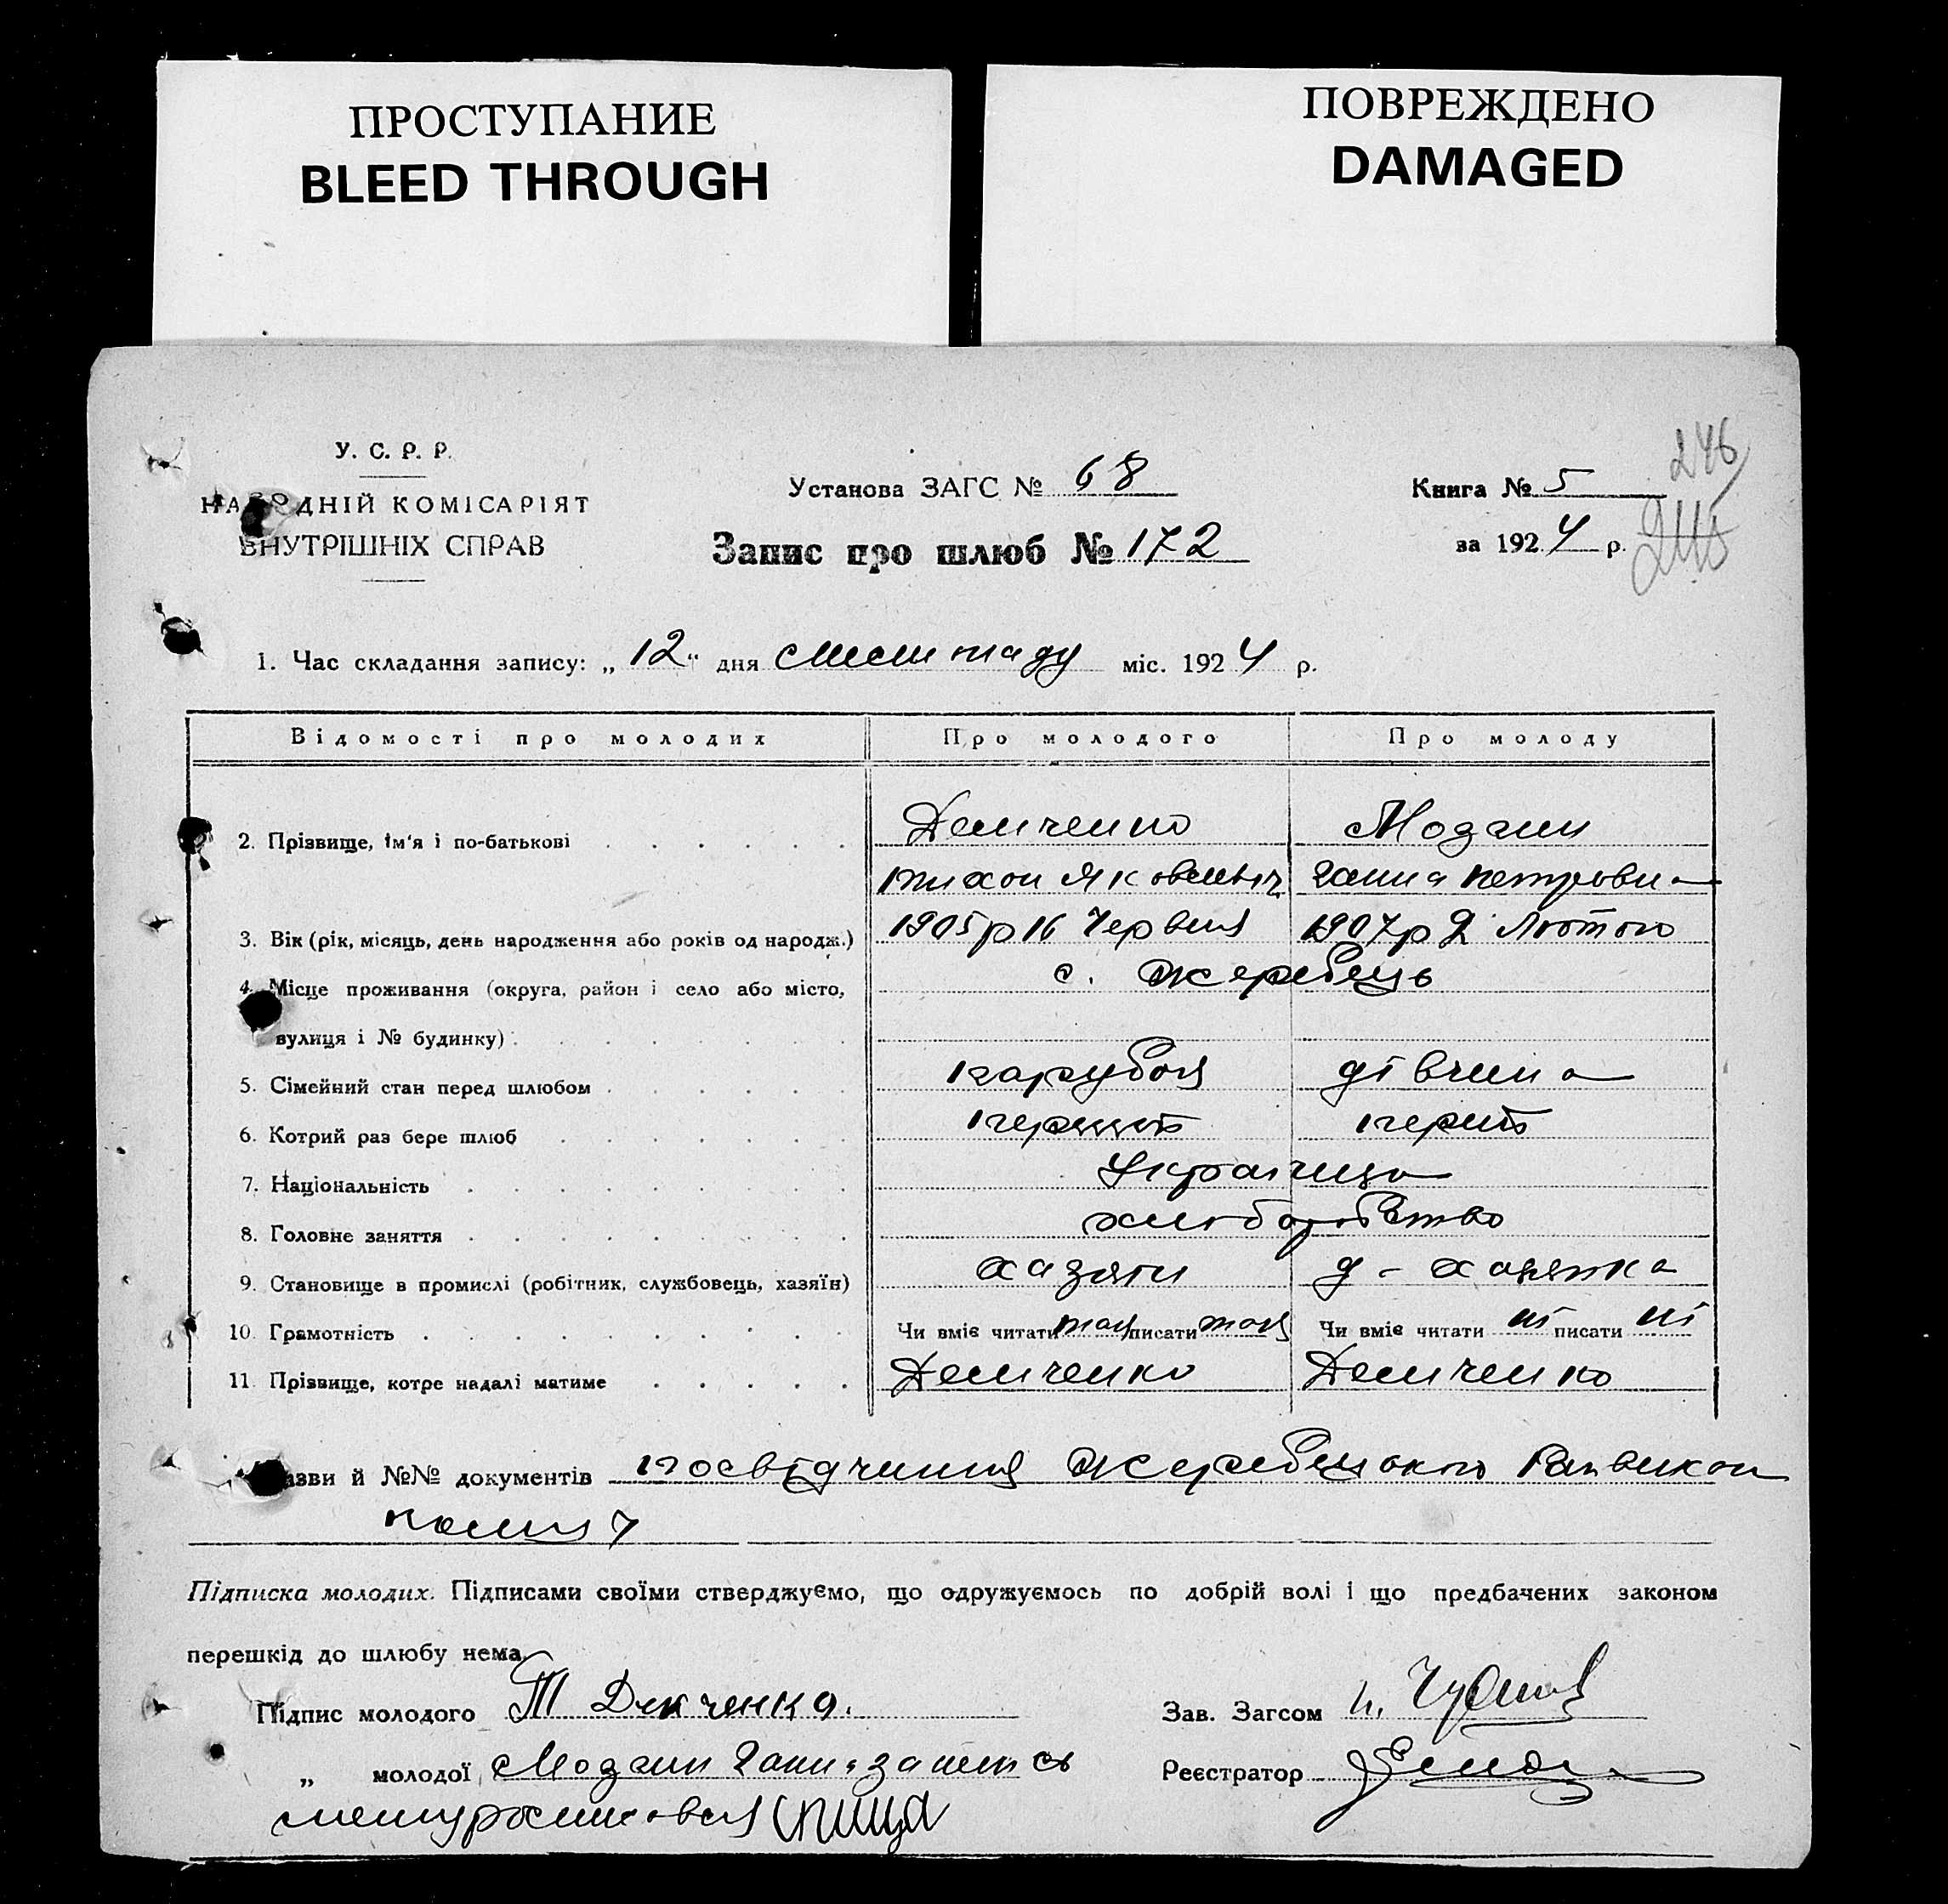 ПРОСТУПАНИЕ
BLEED THROUGH
ПОВРЕЖДЕНО
DAMAGED
У. С. Р. Р.
НАРОДНІЙ КОМІСАРІЯТ
ВНУТРІШНІХ СПРАВ
Установа ЗАГС № 68
Запис про шлюб № 172
Книга № 5
за 1924 р.
246
1. Час складання запису: „12" дня листопаду міс. 1924 р.
Відомості про молодих Про молодого Про молоду
2. Прізвище, ім'я і по-батькові Демченко Мозгин
Тихон Яковлевіч Ганна Петровна
3. Вік (рік, місяць, день народження або років од народж.) 1905 р 16 Червня 1907 р 2 Лютого
4. Місце проживання (округа, район і село або місто, с. Жеребець
вулиця і № будинку)
5. Сімейний стан перед шлюбом парубок дівчина
6. Котрий раз бере шлюб перший перший
7. Національність Українця
8. Головне заняття хліборобство
9. Становище в промислі (робітник, службовець, хазяїн) хазяїн д-хазяйка
10. Грамотність Чи вміє читати так писати так Чи вміє читати ні писати ні
11. Прізвище, котре надалі матиме Демченко Демченко
азви й №№ документів посвідчення Жеребецького Райвикон
кому
Підписка молодих. Підписами своїми стверджуємо, що одружуємось по добрій волі і що предбачених законом
перешкід до шлюбу нема.
Підпис молодого Т Демченко.
Зав. Загсом
„ молодої Мозгин Ганна
Реєстратор